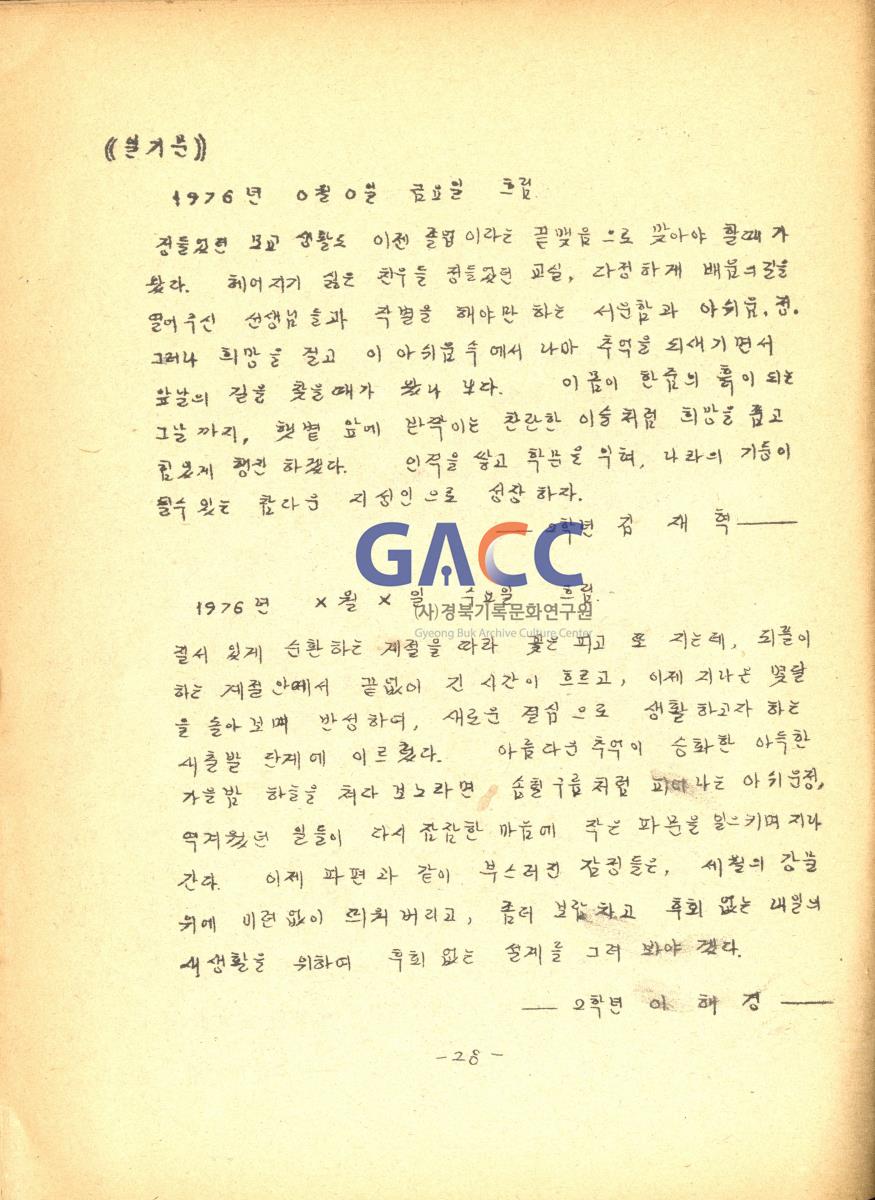 《일기문》
1976년 0월 0일 금요일 흐림.
정들었던 모교 생활도 이젠 졸업이라는 끝맺음으로 맞아야 할때가
왔다. 헤어지기 싫은 찬우들 정들었던 교실, 다정하게 배움의길을
열어주신 선생님들과 작별을 해야만 하는 서운함과 아쉬움, 정.
그러나 희망을 걸고 이 아쉬움속에서 나마 추억을 되새기면서
앞날의 길을 찾을때가 왔나 보다. 이 몸이 한줌의 흙이 되는
그날까지, 햇볕 앞에 반짝이는 찬란한 이술처럼 희망을 품고
힘있게 행진 하겠다. 인격을 쌓고 학문을 익혀, 나라의 기둥이
될수 있는 참다운 지성인으로 성장 하자.
— 2학년 김 재 혁 —
1976년 X월 X일 수요일 흐림.
GACC
(사)경북기록문화연구원
Gyeong Buk Archive Culture Center
질서 있게 순환하는 계절을 따라 꽃은 피고 또 지는데, 되풀이
하는 계절안에서 끝없이 긴 시간이 흐르고, 이제 지나온 몇달
을 돌아보며 반성하여, 새로운 결심으로 생활하고자 하는
새출발 단계에 이르렀다. 아름다운 추억이 승화한 아득한
가을밤 하늘을 쳐다 보노라면 솜털구름처럼 피어나는 아쉬운정,
역겨웠던 일들이 다시 잠잠한 마음에 작은 파문을 일으키며 지나
간다. 이제 파편과 같이 부스러진 감정들은, 세월의 강물
위에 미련없이 띄워버리고, 좀더 보람차고 후회 없는 내일의
새생활을 위하여 후회 없는 설계를 그려 봐야 겠다.
— 2학년 이 해 경 —
-28-